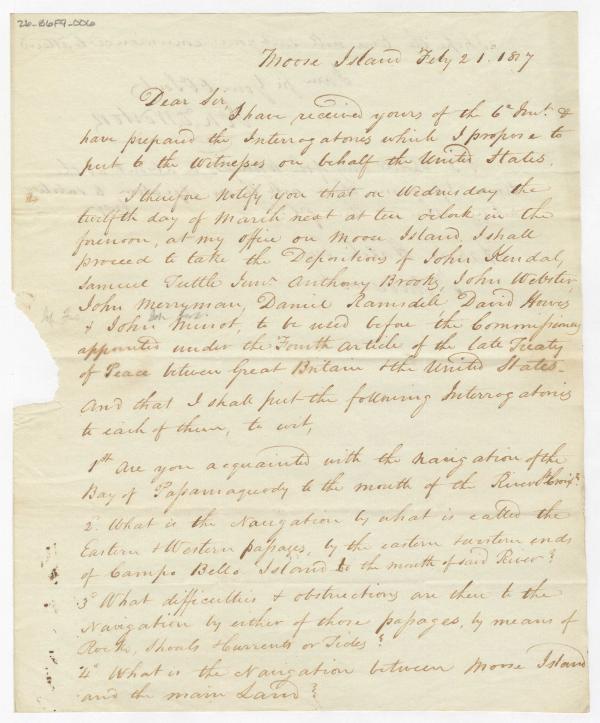 26-B6F9-006
Moose Island Feby 21st 1817
Dear Sir,
I have received yours of the 6th Inst. &
have prepared the Interrogatories which I propose to
put to the Witnesses on behalf the United States.
I therefore Notify you that on Wednesday the
twelfth day of March next at ten o'clock in the
forenoon, at my office on Moose Island, I shall
proceed to take the Depositions of John Kendal,
Samuel Tuttle Junr. Anthony Brooks, John Webster,
John Merryman, Daniel Ramsdell, David Howes
& John to be used before the Commissioners
appointed under the Fourth article of the late Treaty
of Peace between Great Britain & the United States.
And that I shall put the following Interrogatories
to each of them, to wit,
1st Are you acquainted with the navigation of the
Bay of Passamaquody to the mouth of the River St Croix?
2. What is the Navigation by what is called the
Eastern & Western passages, by the eastern & western ends
of Campo Bello Island to the mouth of said River?
3d What difficulties & obstructions are there to the
Navigation by either of those passages, by means of
Rocks, Shoals & Currents or Tides?
4th What is the Navigation between Moose Island
and the main Land?